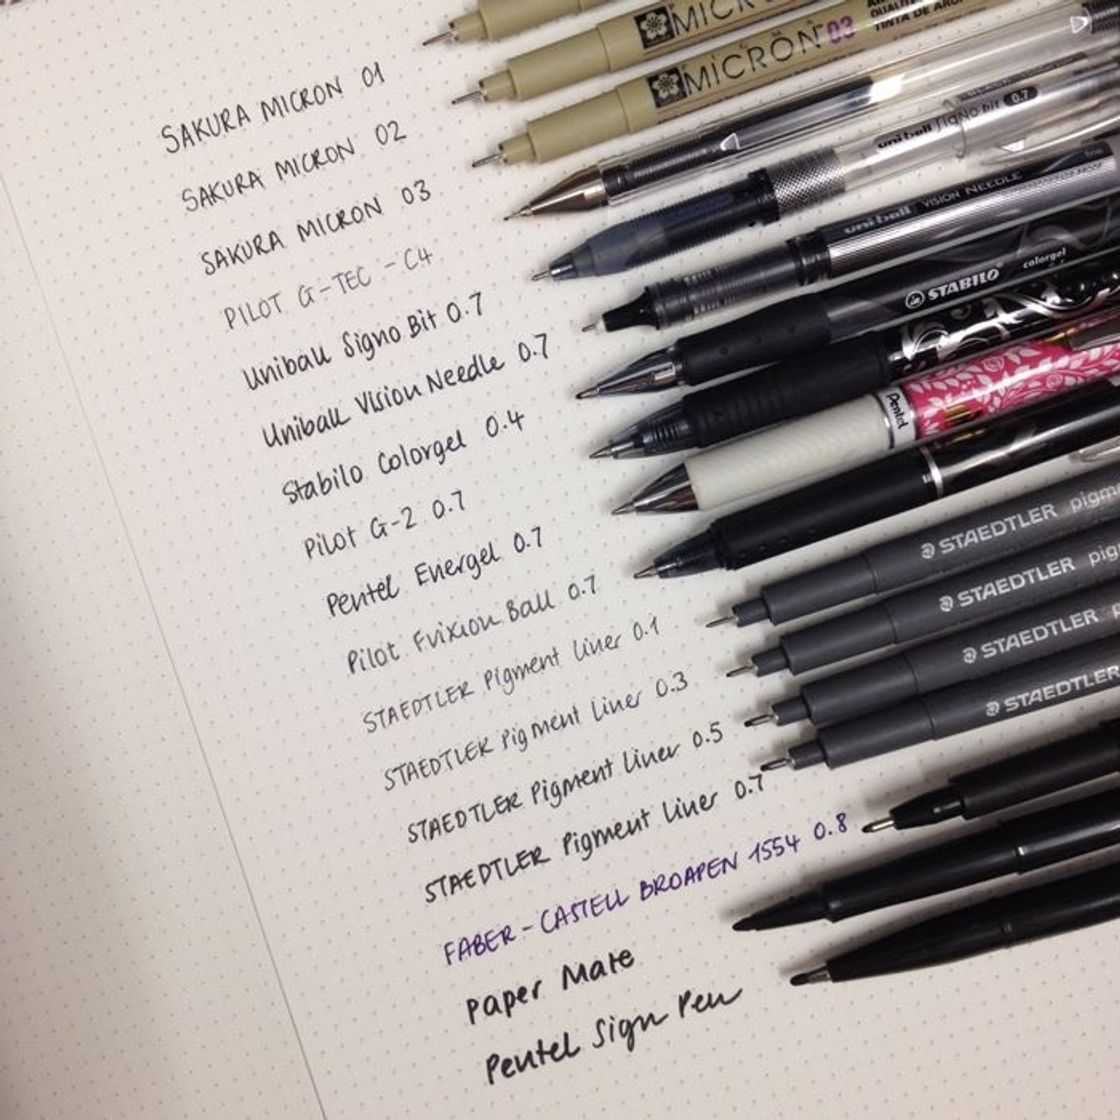 SAKURA MICRON 01
SAKURA MICRON 02
SAKURA MICRON 03
PILOT G-TEC-C4
Uniball Signo Bit 0.7
Uniball Vision Needle 0.7
Stabilo Colorgel 0.4
Pilot G-2 0.7
Pentel Energel 0.7
Pilot Frixion Ball 0.7
STAEDTLER Pigment Liner 0.1
STAEDTLER Pigment Liner 0.3
STAEDTLER Pigment Liner 0.5
STAEDTLER Pigment Liner 0.7
FABER-CASTELL BROAPEN 1554 0.8
Paper Mate
Pentel Sign Pen
MICR
MICRON 03
MICRON
uni-ball SIGNO BIT 0.7
uni-ball VISION NEEDLE fine
STABILO colorgel
Pentel
STAEDTLER pigm
STAEDTLER pig
STAEDTLER
STAEDTLER